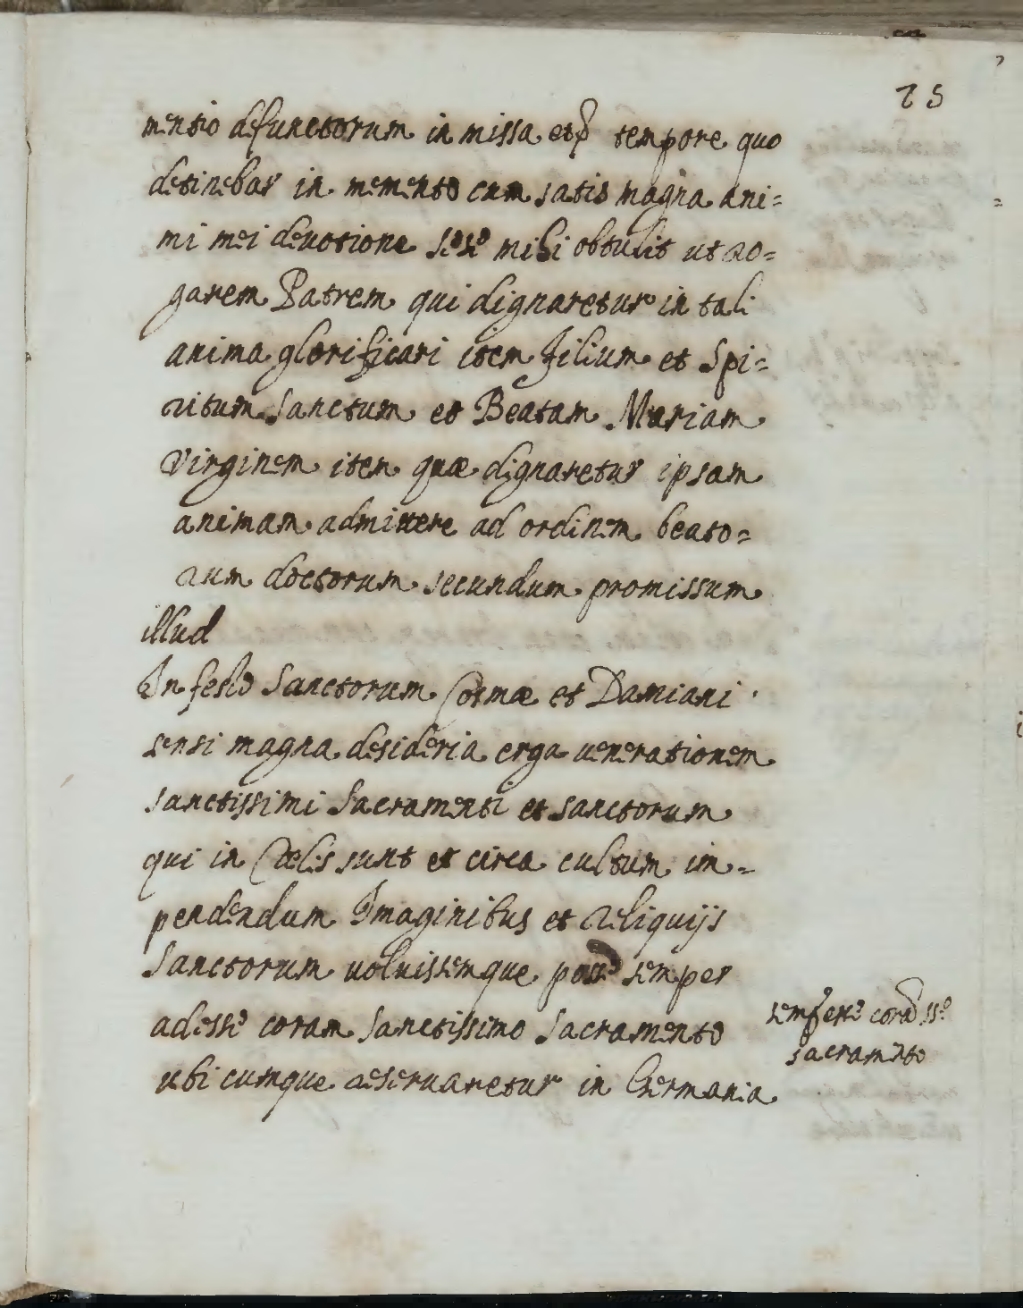 25
mentio defunctorum in missa et tempore quo
detinebar in memento cum satis magna ani=
mi mei deuotione sese mihi obtulit ut ro=
garem Patrem qui dignaretur in tali
anima glorificari item filium et Spi=
ritum Sanctum et Beatam Mariam
Virginem item quæ dignaretur ipsam
animam admittere ad ordinem beato=
rum doctorum secundum promissum
illud
In festo Sanctorum Cosmæ et Damiani
sensi magna desideria erga uenerationem
sanctissimi Sacramenti et sanctorum
qui in Cœlis sunt et circa cultum im=
pendendum Imaginibus et reliquijs
Sanctorum uoluissemque posse semper
adesse coram Sanctissimo Sacramento
ubicumque reseruaretur in Germania
semper esse
sacramento